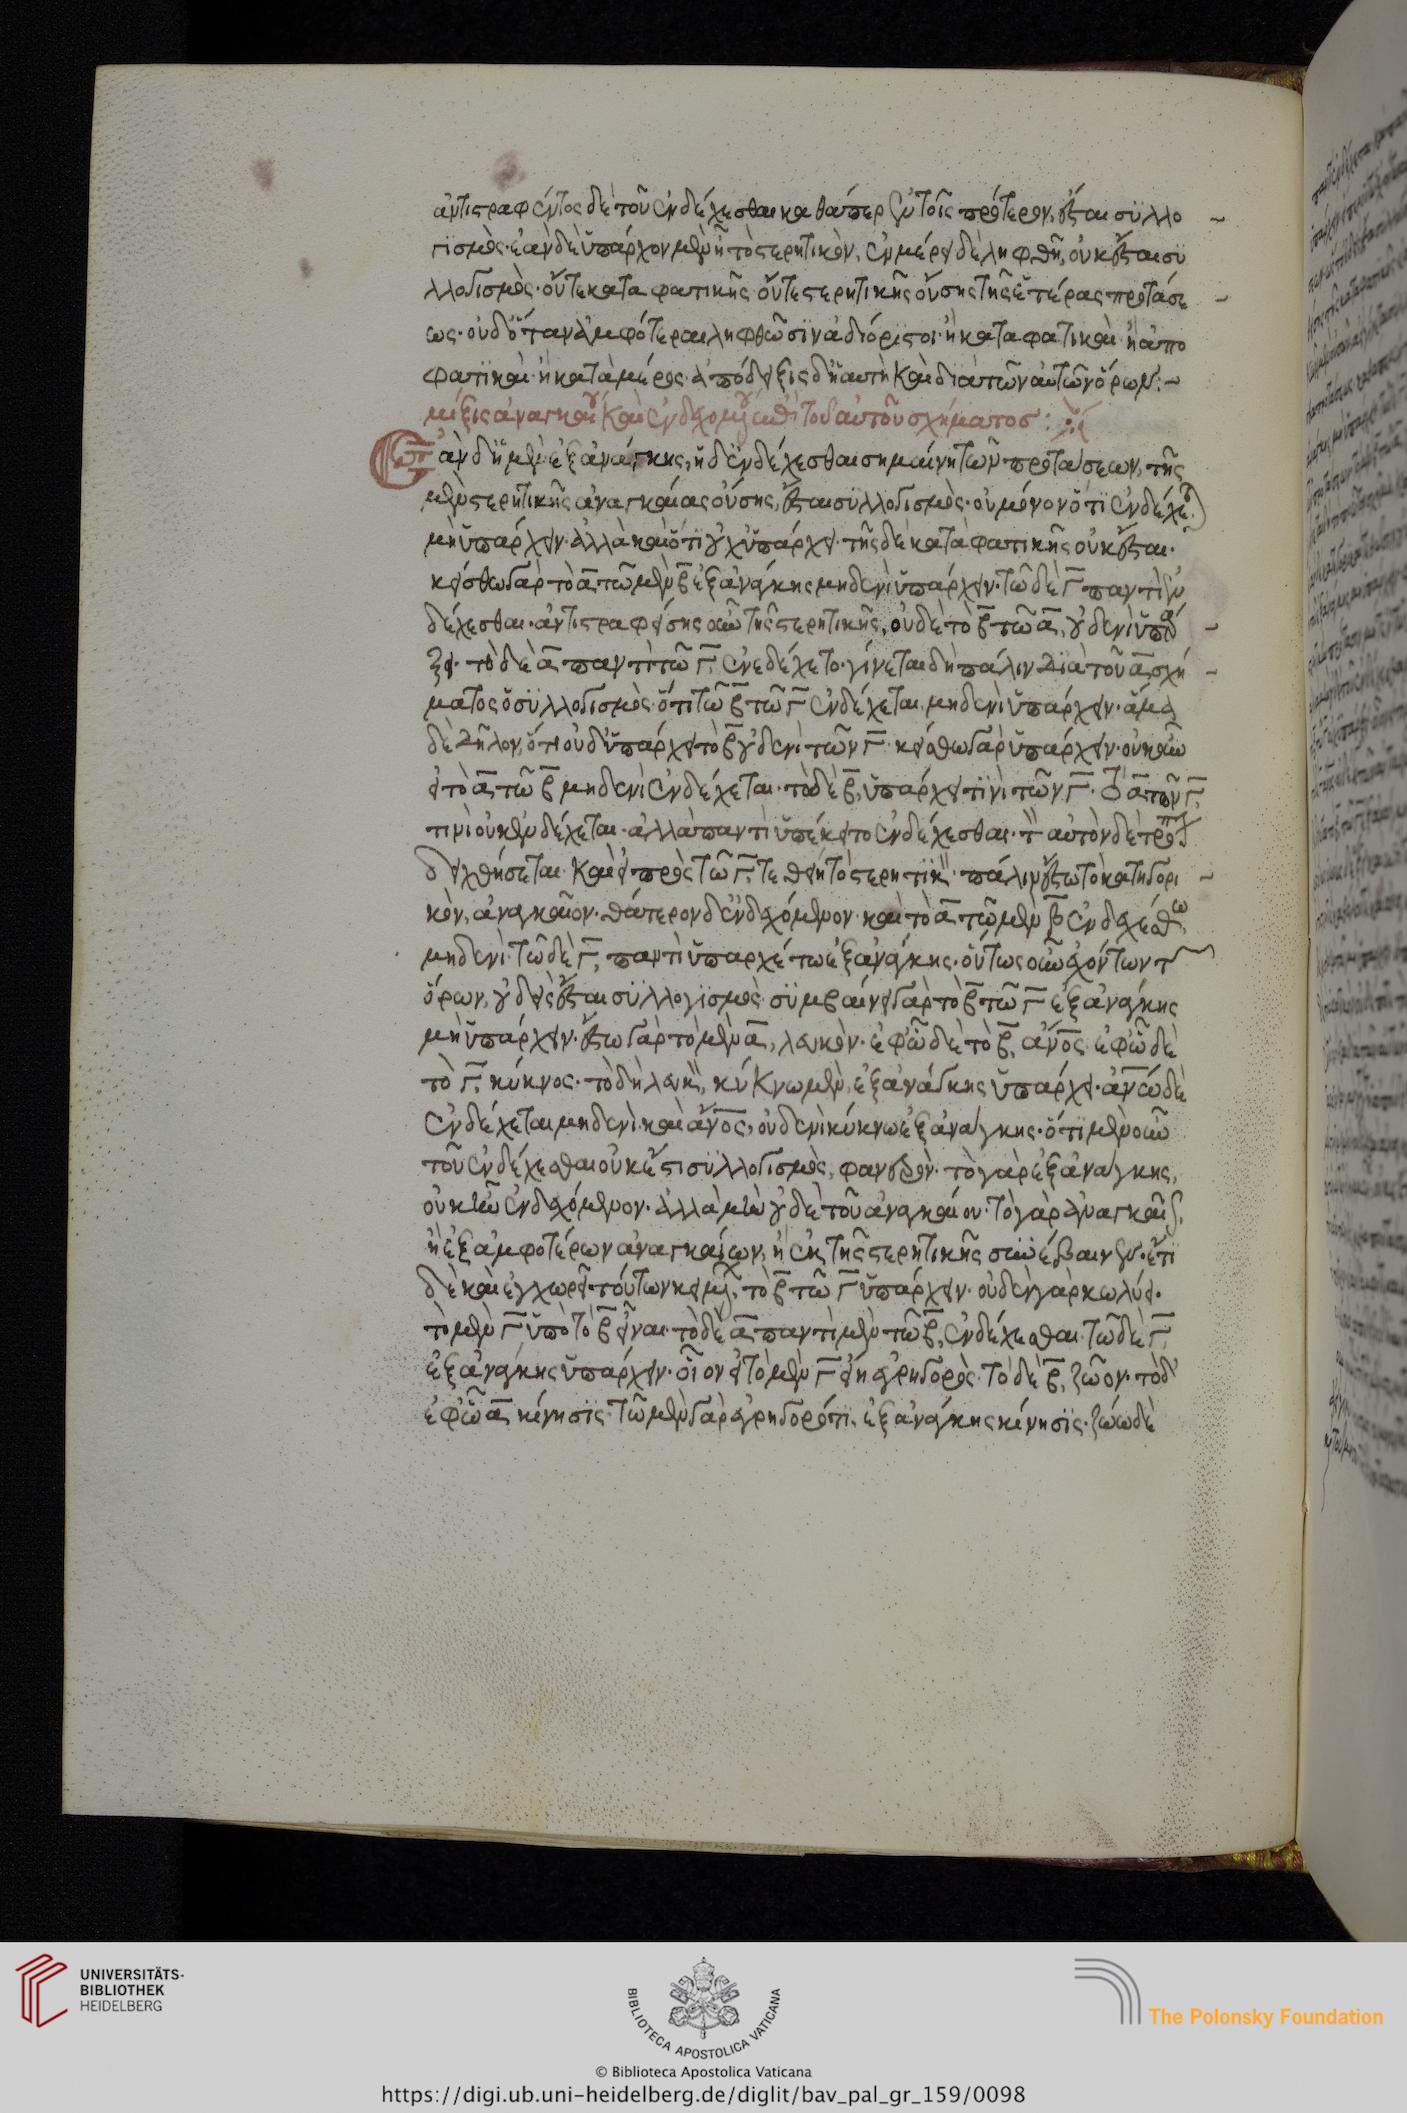 ἀντιστραφέντος δὲ τοῦ ἐνδέχεσθαι καθάπερ ἐν τοῖς πρότερον, ἔσται συλλο
γισμὸς· ἐὰν δὲ ὑπάρχον μὲν ᾖ τὸ στερητικὸν, ἐν μέρει δὲ ληφθῆ, οὐκ ἔσται συ
λλογισμὸς· οὔτε καταφατικῆς οὔτε στερητικῆς οὔσης τῆς ἑτέρας προτάσε
ως· οὐδ' ὅταν ἀμφότεραι ληφθῶσιν ἀδιόριστοι· ἢ καταφατικαὶ ἢ ἀπο
φατικαὶ ἢ κατὰ μέρος· ἀπόδειξις δ' ἡ αὐτὴ καὶ διὰ τῶν αὐτῶν ὅρων :-
μίξις ἀναγκαίου καὶ ἐνδεχομένου ἐπὶ τοῦ αὐτοῦ σχήματος :
Ἐπἀν δ' ἡ μὲν ἐξ ἀνάγκης, ἡ δ' ἐνδέχεσθαι σημαίνη τῶν προτάσεων, τῆς
μὲν στερητικῆς ἀναγκαίας οὔσης, ἔσται συλλογισμὸς· οὐ μόνον ὅτι ἐνδέχε
μὴ ὑπάρχειν· ἀλλὰ καὶ ὅτι οὐχ ὑπάρχει· τῆς δὲ καταφατικῆς οὐκ ἔσται·
κείσθω γὰρ τὸ α τῶ μὲν β ἐξ ἀνάγκης μηδενὶ ὑπάρχειν· τῶ δὲ γ παντὶ ἐν
δέχεσθαι· ἀντιστραφείσης οὖν τῆς στερητικῆς, οὐδὲ τὸ β τῶ α, οὐδενὶ ὑπά
ξει· τὸ δὲ α παντὶ τῶ γ ἐνεδέχετο· γίνεται δὴ πάλιν διὰ τοῦ α σχή
ματος ὁ συλλογισμὸς ὅτι τῶ β τῶ γ ἐνδέχεται μηδενὶ ὑπάρχειν· ἅμα
δὲ δῆλον, ὅτι οὐδ' ὑπάρχει τὸ β οὐδενὶ τῶν γ· κείσθω γὰρ ὑπάρχειν· οὐκοῦν
εἰ τὸ α τῶ β μηδενὶ ἐνδέχεται· τὸ δὲ β, ὑπάρχει τινὶ τῶν γ· τὸ α τῶν γ,
τινὶ οὐκ ἐνδέχεται· ἀλλὰ παντὶ ὑπέκειτο ἐνδέχεσθαι· τὸν αὐτὸν δὲ τρόπον
δειχθήσεται καὶ εἰ πρὸς τῶ γ, τεθείη τὸ στερητικόν· πάλιν ἔστω τὸ κατηγορι
κὸν, ἀναγκαῖον· θάτερον δ' ἐνδεχόμενον· καὶ τὸ α τῶ μὲν β ἐνδεχέσθω
μηδενὶ· τῶ δὲ γ, παντὶ ὑπαρχέτω ἐξ ἀνάγκης· οὕτως οὖν ἐχόντων τ
ὅρων, οὐδεὶς ἔσται συλλογισμὸς· συμβαίνει γὰρ τὸ β τῶ γ ἐξ ἀνάγκης
μὴ ὑπάρχειν· ἔστω γὰρ τὸ μὲν α, λευκὸν· ἐφ' ᾧ δὲ τὸ β, ἄνος· ἐφ' ᾧ δὲ
τὸ γ, κύκνος· τὸ δὴ λευκὸν, κύκνω μὲν, ἐξ ἀνάγκης ὑπάρχει· ἀνω δὲ
ἐνδέχεται μηδενὶ· καὶ ἄνος, οὐδενὶ κύκνω ἐξ ἀνάγκης· ὅτι μὲν οὖν
τοῦ ἐνδέχεσθαι οὐκ ἔστι συλλογισμὸς, φανερὸν· τὸ γὰρ ἐξ ἀνάγκης,
οὐκ ἦν ἐνδεχόμενον· ἀλλὰ μὴν οὐδὲ τοῦ ἀναγκαίου· τὸ γὰρ ἀναγκαῖον,
ἢ ἐξ ἀμφοτέρων ἀναγκαίων, ἢ ἐκ τῆς στερητικῆς συνέβαινεν· ἔτι
δὲ καὶ ἐγχωρεῖ τούτων κειμένων, τὸ β τῶ γ ὑπάρχειν· οὐδὲν γὰρ κωλύει·
τὸ μὲν γ ὑπὸ τὸ β εἶναι· τὸ δὲ α παντὶ μὲν τῶ β, ἐνδέχεσθαι· τῶ δὲ γ
ἐξ ἀνάγκης ὑπάρχειν· οἷον εἰ τὸ μὲν γ εἴη ἐγρηγορὸς· τὸ δὲ β, ζῶον· τὸ δ'
ἐφ' ᾧ α κίνησις· τῶ μὲν γὰρ ἐγρηγορότι, ἐξ ἀνάγκης κίνησις· ζώω δὲ
UNIVERSITÄTS-
BIBLIOTHEK
HEIDELBERG
BIBLIOTECA APOSTOLICA VATICANA
© Biblioteca Apostolica Vaticana
The Polonsky Foundation
https://digi.ub.uni-heidelberg.de/diglit/bav_pal_gr_159/0098